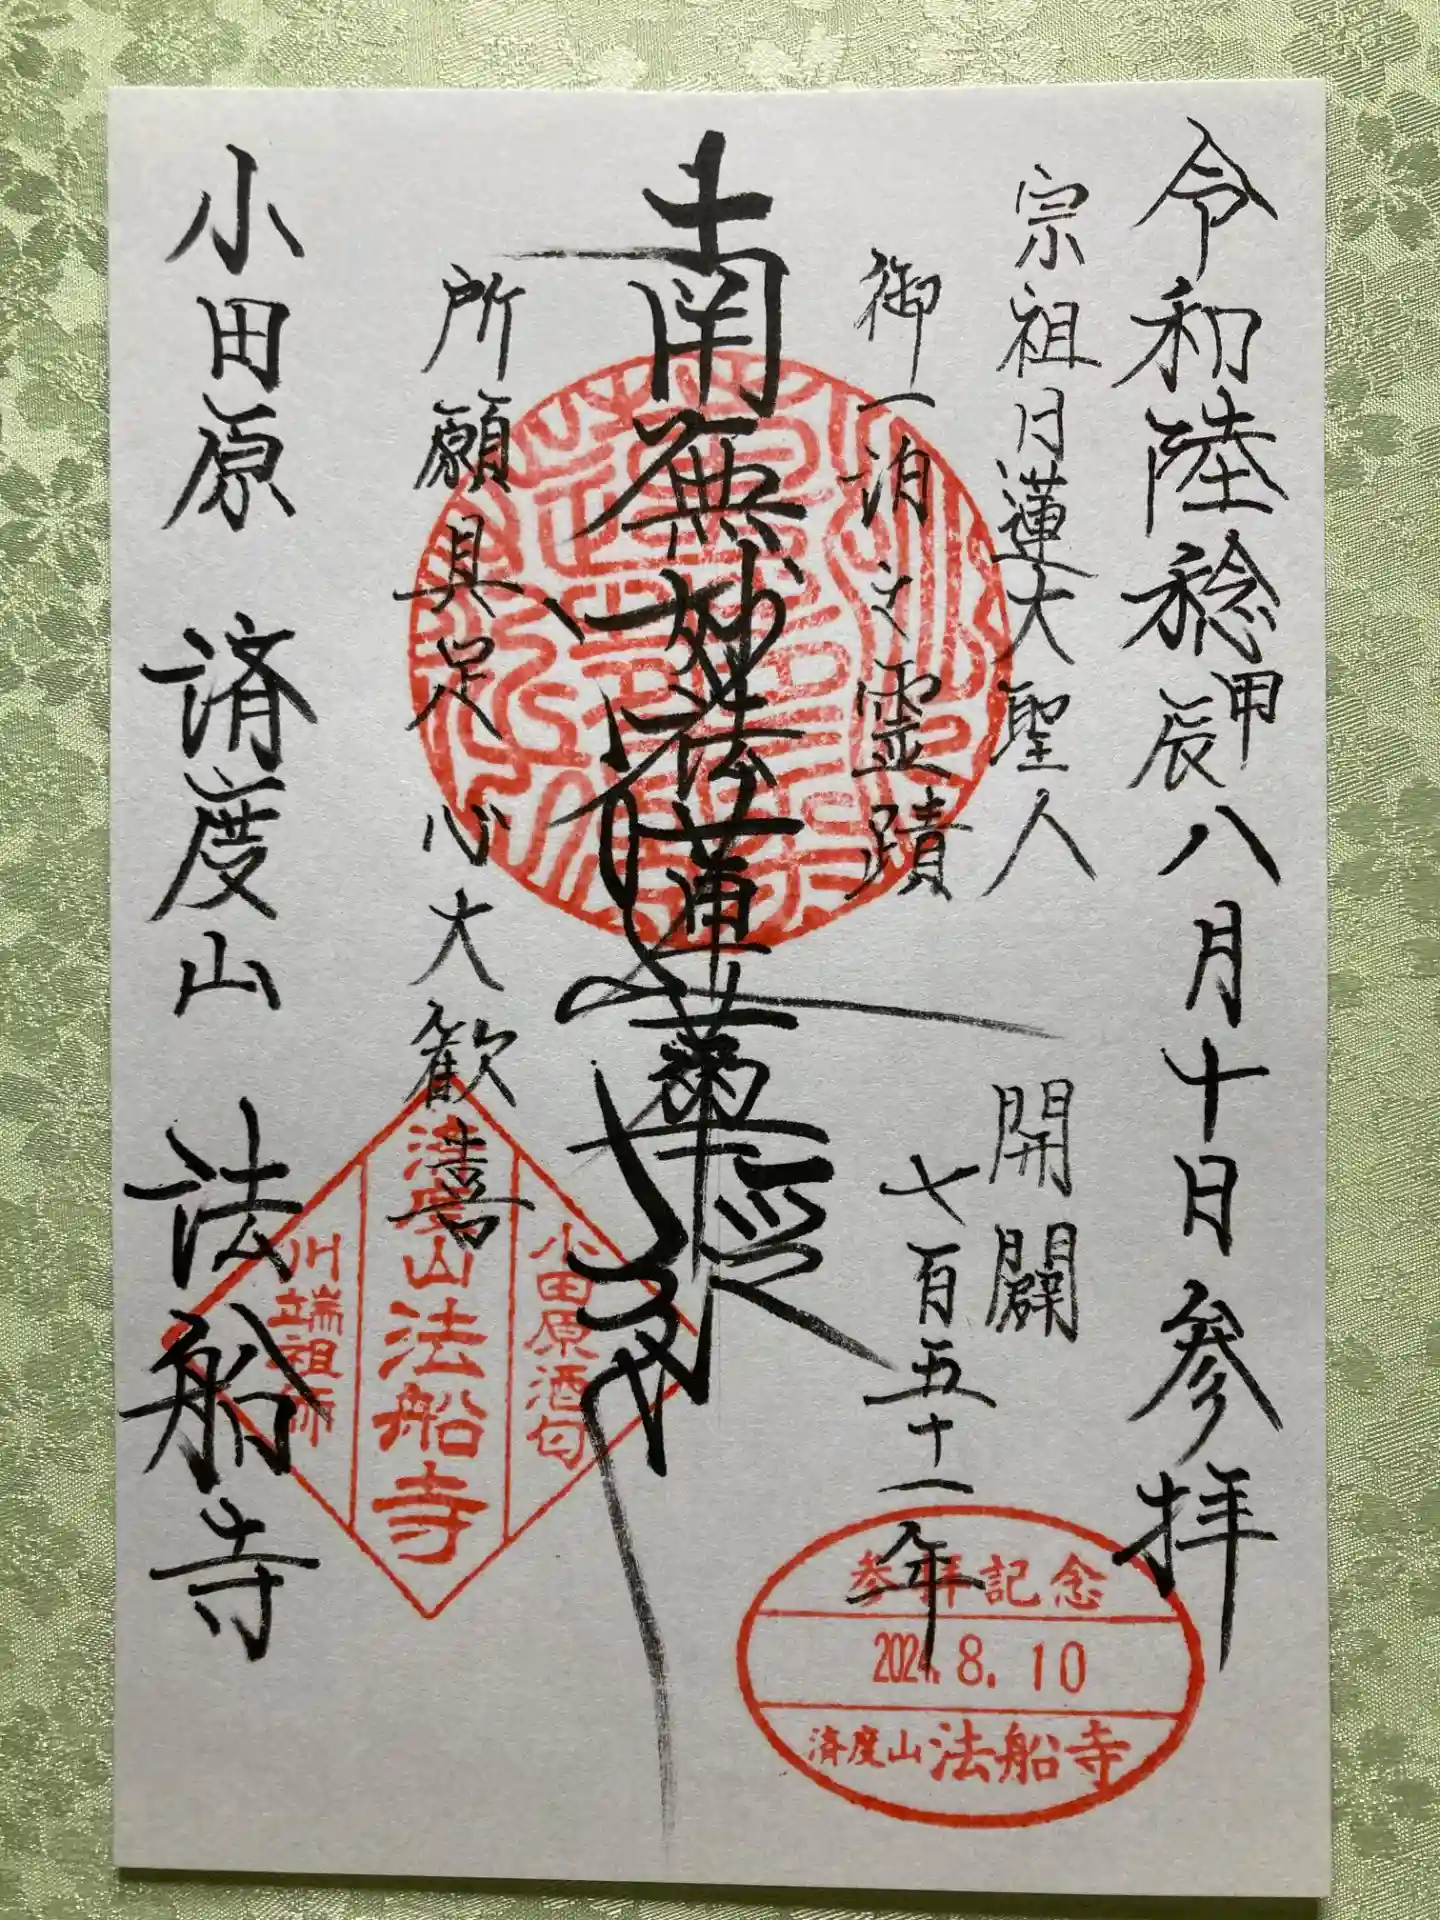 令和陸稔甲辰八月十日参拝
宗祖日蓮大聖人
御一泊之霊蹟
開闢
七百五十一年
南無妙法蓮華経
所願具足心大歓喜
小田原 済度山 法船寺
小田原酒匂
済度山法船寺
川端祖師
参拝記念
2024.8.10
済度山法船寺